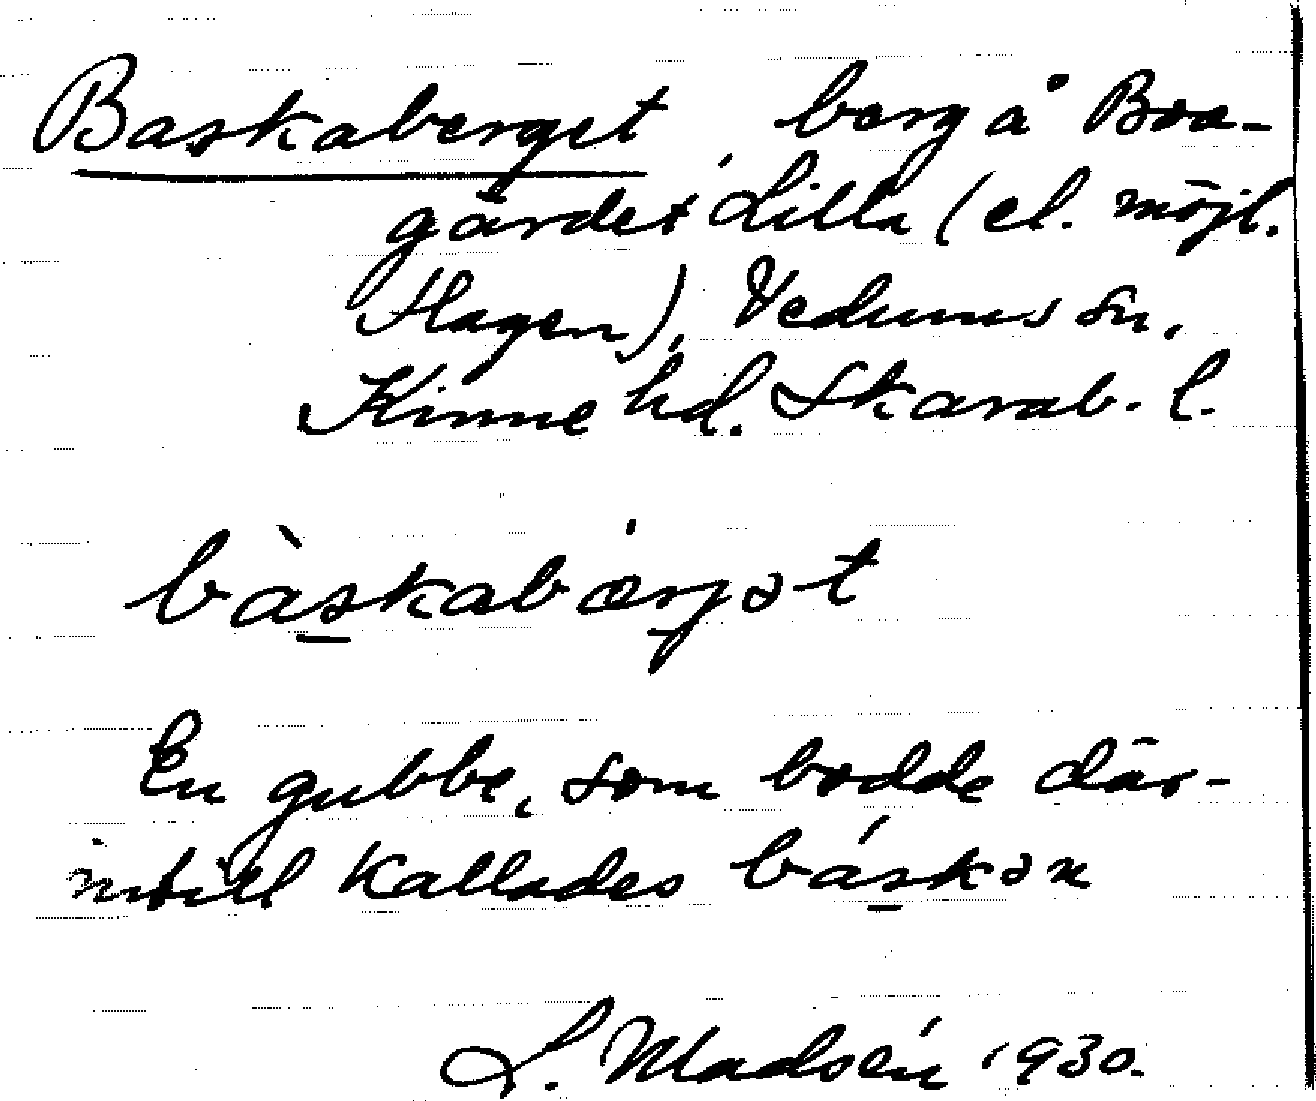 Baskaberget berg å Boa-
gärdet Lilla (el. möjl.
Hagen), Vedums sn,
Kinne hd. Skarab. l.
bàskabærjət
En gubbe, som bodde där-
intill kallades báskən
S. Madsén 1930.